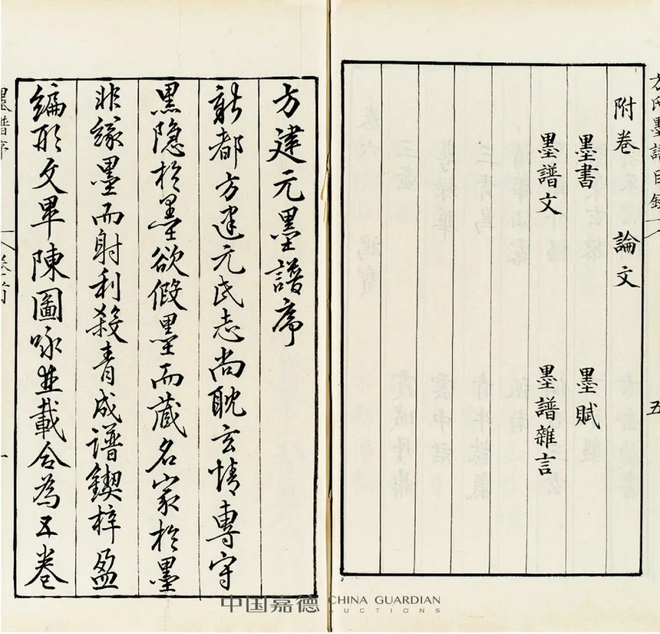 方氏墨譜目錄 五
附卷 論文
墨書 墨賦
墨譜文 墨譜雜言
方建元墨譜序
新都方建元氏志尚耽玄情專守
黑隐於墨欲假墨而藏名家於墨
非緣墨而射利殺青成譜鍥梓盈
編形文畢陳圖咏並載合為五卷
墨譜序 卷首 一
中国嘉德 CHINA GUARDIAN
AUCTIONS